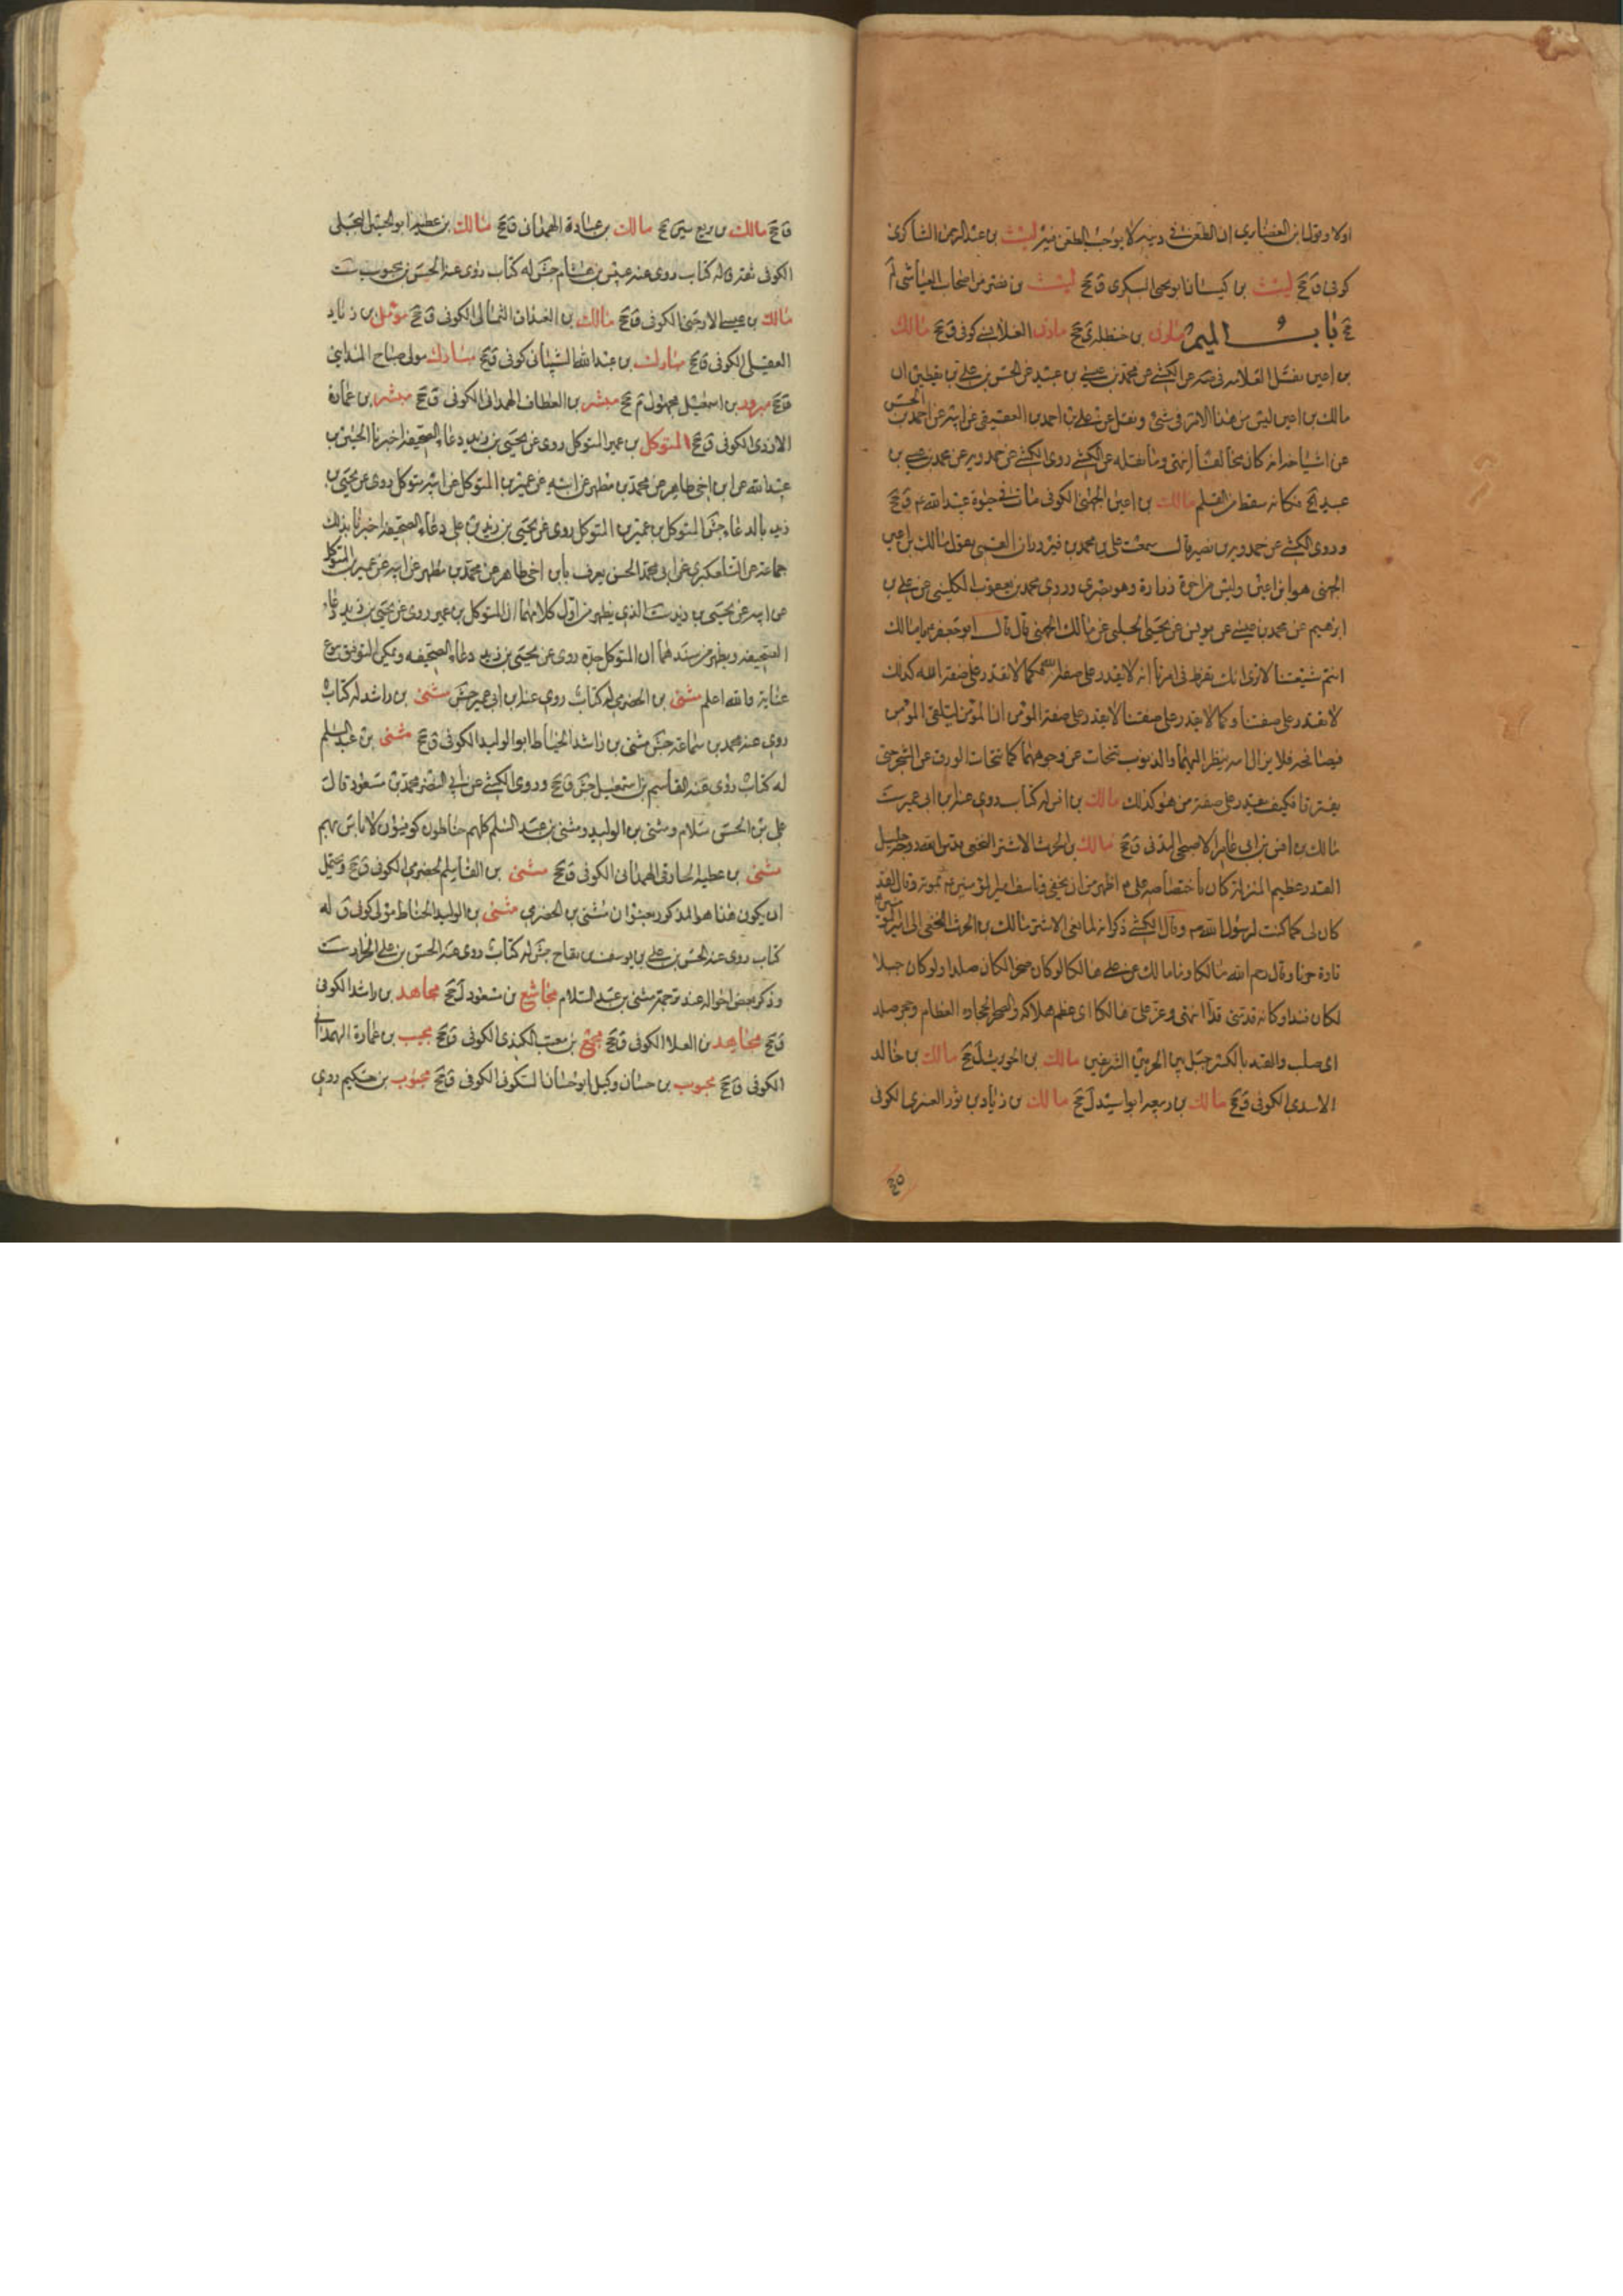 اولا وقول ابن الغضايري ان الطعن في دينه لا يوجب الطعن فيه ليث بن عبد الرحمن الشاكري
كوفي ق جخ ليث بن كيسان ابو يحيى السكري ق جخ ليث بن نصر من اصحاب العياشي لم
جخ باب الميم مازن بن حنظلة ي جخ مازن القلانسي كوفي ق جخ مالك
بن اعين نقل العلامة في صه عن الكشي عن محمد بن عيسى بن عبيد عن الحسن بن علي بن يقطين ان
مالك بن اعين ليس من هذا الامر في شئ ونقل عن علي بن احمد العقيقي عن ابيه عن احمد بن الحسن
عن اشياخه انه كان مخالفا انتهى وما نقله عن الكشي روى الكشي عن حمدويه عن محمد بن عيسى بن
عبيد الخ فكانه سقط من القلم مالك بن اعين الجهني الكوفي مات في حيوة عبد الله ع ق جخ
وروى الكشي عن حمدويه بن نصير قال سمعت علي بن محمد بن فيروزان القمي يقول مالك بن اعين
الجهني هو ابن اعين وليس من اخوة زرارة وهو بصري وروى محمد بن يعقوب الكليني عن علي بن
ابرهيم عن محمد بن عيسى عن يونس عن يحيى الحلبي عن مالك الجهني قال قال ابو جعفر ع يا مالك
انتم شيعتنا لا ترى انك تفرط في امرنا انه لا يقدر على صفة الله فكما لا يقدر على صفة الله كذلك
لا يقدر على صفتنا وكما لا يقدر على صفتنا لا يقدر على صفة المؤمن ان المؤمن ليلقى المؤمن
فيصافحه فلا يزال الله ينظر اليهما والذنوب تتحات عن وجوههما كما يتحات الورق عن الشجر حتى
يفترقا فكيف يقدر على صفة من هو كذلك مالك بن انس له كتاب روى عنه ابن ابي عمير ست
مالك بن انس بن ابي عامر الاصبحي المدني ق جخ مالك بن الحرث الاشتر النخعي قدس الله روحه جليل
القدر عظيم المنزلة كان اختصاصه بعلي ع اظهر من ان يخفى وتاسف امير المؤمنين ع بموته وقال لقد
كان لي كما كنت لرسول الله ص وقال الكشي ذكر انه لما نعي الاشتر مالك بن الحرث النخعي الى امير المؤمنين
تاوه حزنا وقال رحم الله مالكا وما مالك عز علي هالكا لو كان صخرا لكان صلدا ولو كان جبلا
لكان فندا وكانه قد مني قدا انتهى وعز علي هالكا اي عظم هلاكه والصخر الحجارة العظام وحجر صلد
اي صلب والفند بالكسر جبل بين الحرمين الشريفين مالك بن الحويرث ل جخ مالك بن خالد
الاسدي الكوفي ق جخ مالك بن ربيعة ابو اسيد ل جخ مالك بن زياد بن ثور العنزي الكوفي
ق جخ مالك بن ربيع سين جخ مالك بن عبادة الهمداني ق جخ مالك بن عطية ابو الحسين البجلي
الكوفي ثقة ق له كتاب روى عنه عبيس بن هشام جش له كتاب روى عنه الحسن بن محبوب ست
مالك بن عيسى الارحبي الكوفي ق جخ مالك بن الغدان الثمالي الكوفي ق جخ مؤمل بن زياد
العقيلي الكوفي ق جخ مبارك بن عبد الله الشيباني كوفي ق جخ مبارك مولى صباح المدايني
ق جخ مبرور بن اسمعيل مجهول لم جخ مبشر بن العطاف الهمداني الكوفي ق جخ مبشر بن عمارة
الازدي الكوفي ق جخ المتوكل بن عمير المتوكل روى عن يحيى بن زيد دعاء الصحيفة اخبرنا الحسين بن
عبيد الله عن ابن اخي طاهر عن محمد بن مطهر عن ابيه عن عمير بن المتوكل عن ابيه متوكل روى عن يحيى بن
زيد بالدعاء جش المتوكل بن عمير بن المتوكل روى عن يحيى بن زيد بن علي دعاء الصحيفة اخبرنا بذلك
جماعة عن التلعكبري عن ابي محمد الحسن يعرف بابن اخي طاهر عن محمد بن مطهر عن ابيه عن عمير بن المتوكل
عن ابيه عن يحيى بن زيد ست الذي يظهر من اول كلامهما ان المتوكل بن عمير روى عن يحيى بن زيد دعاء
الصحيفة ويظهر من سندهما ان المتوكل جده روى عن يحيى بن زيد دعاء الصحيفة ويمكن التوفيق بنوع
عناية والله اعلم مثنى بن الحضرمي له كتاب روى عنه ابن ابي عمير جش مثنى بن راشد له كتاب
روى عنه محمد بن سماعة جش مثنى بن راشد الحناط ابو الوليد الكوفي ق جخ مثنى بن عبد السلم
له كتاب روى عنه القاسم بن اسمعيل جش ق جخ وروى الكشي عن ابي النضر محمد بن مسعود قال
علي بن الحسن سلام ومثنى بن الوليد ومثنى بن عبد السلم كلهم حناطون كوفيون لا باس بهم
مثنى بن عطية الحارثي الهمداني الكوفي ق جخ مثنى بن القاسم الحضرمي الكوفي ق جخ ويحتمل
ان يكون هذا هو المذكور بعنوان مثنى بن الحضرمي مثنى بن الوليد الحناط مولى كوفي ق له
كتاب روى عنه الحسن بن علي بن يوسف بن بقاح جش له كتاب روى عنه الحسن بن علي الخزاز ست
وذكر بعض احواله عند ترجمة مثنى بن عبد السلام مجاشع بن مسعود ل جخ مجاهد بن راشد الكوفي
ق جخ مجاهد بن العلا الكوفي ق جخ مجمع بن معتب الكندي الكوفي ق جخ مجيب بن عمارة الهمداني
الكوفي ق جخ محبوب بن حسان وكيل ابو حسان السكوني الكوفي ق جخ محبوب بن حكيم روى